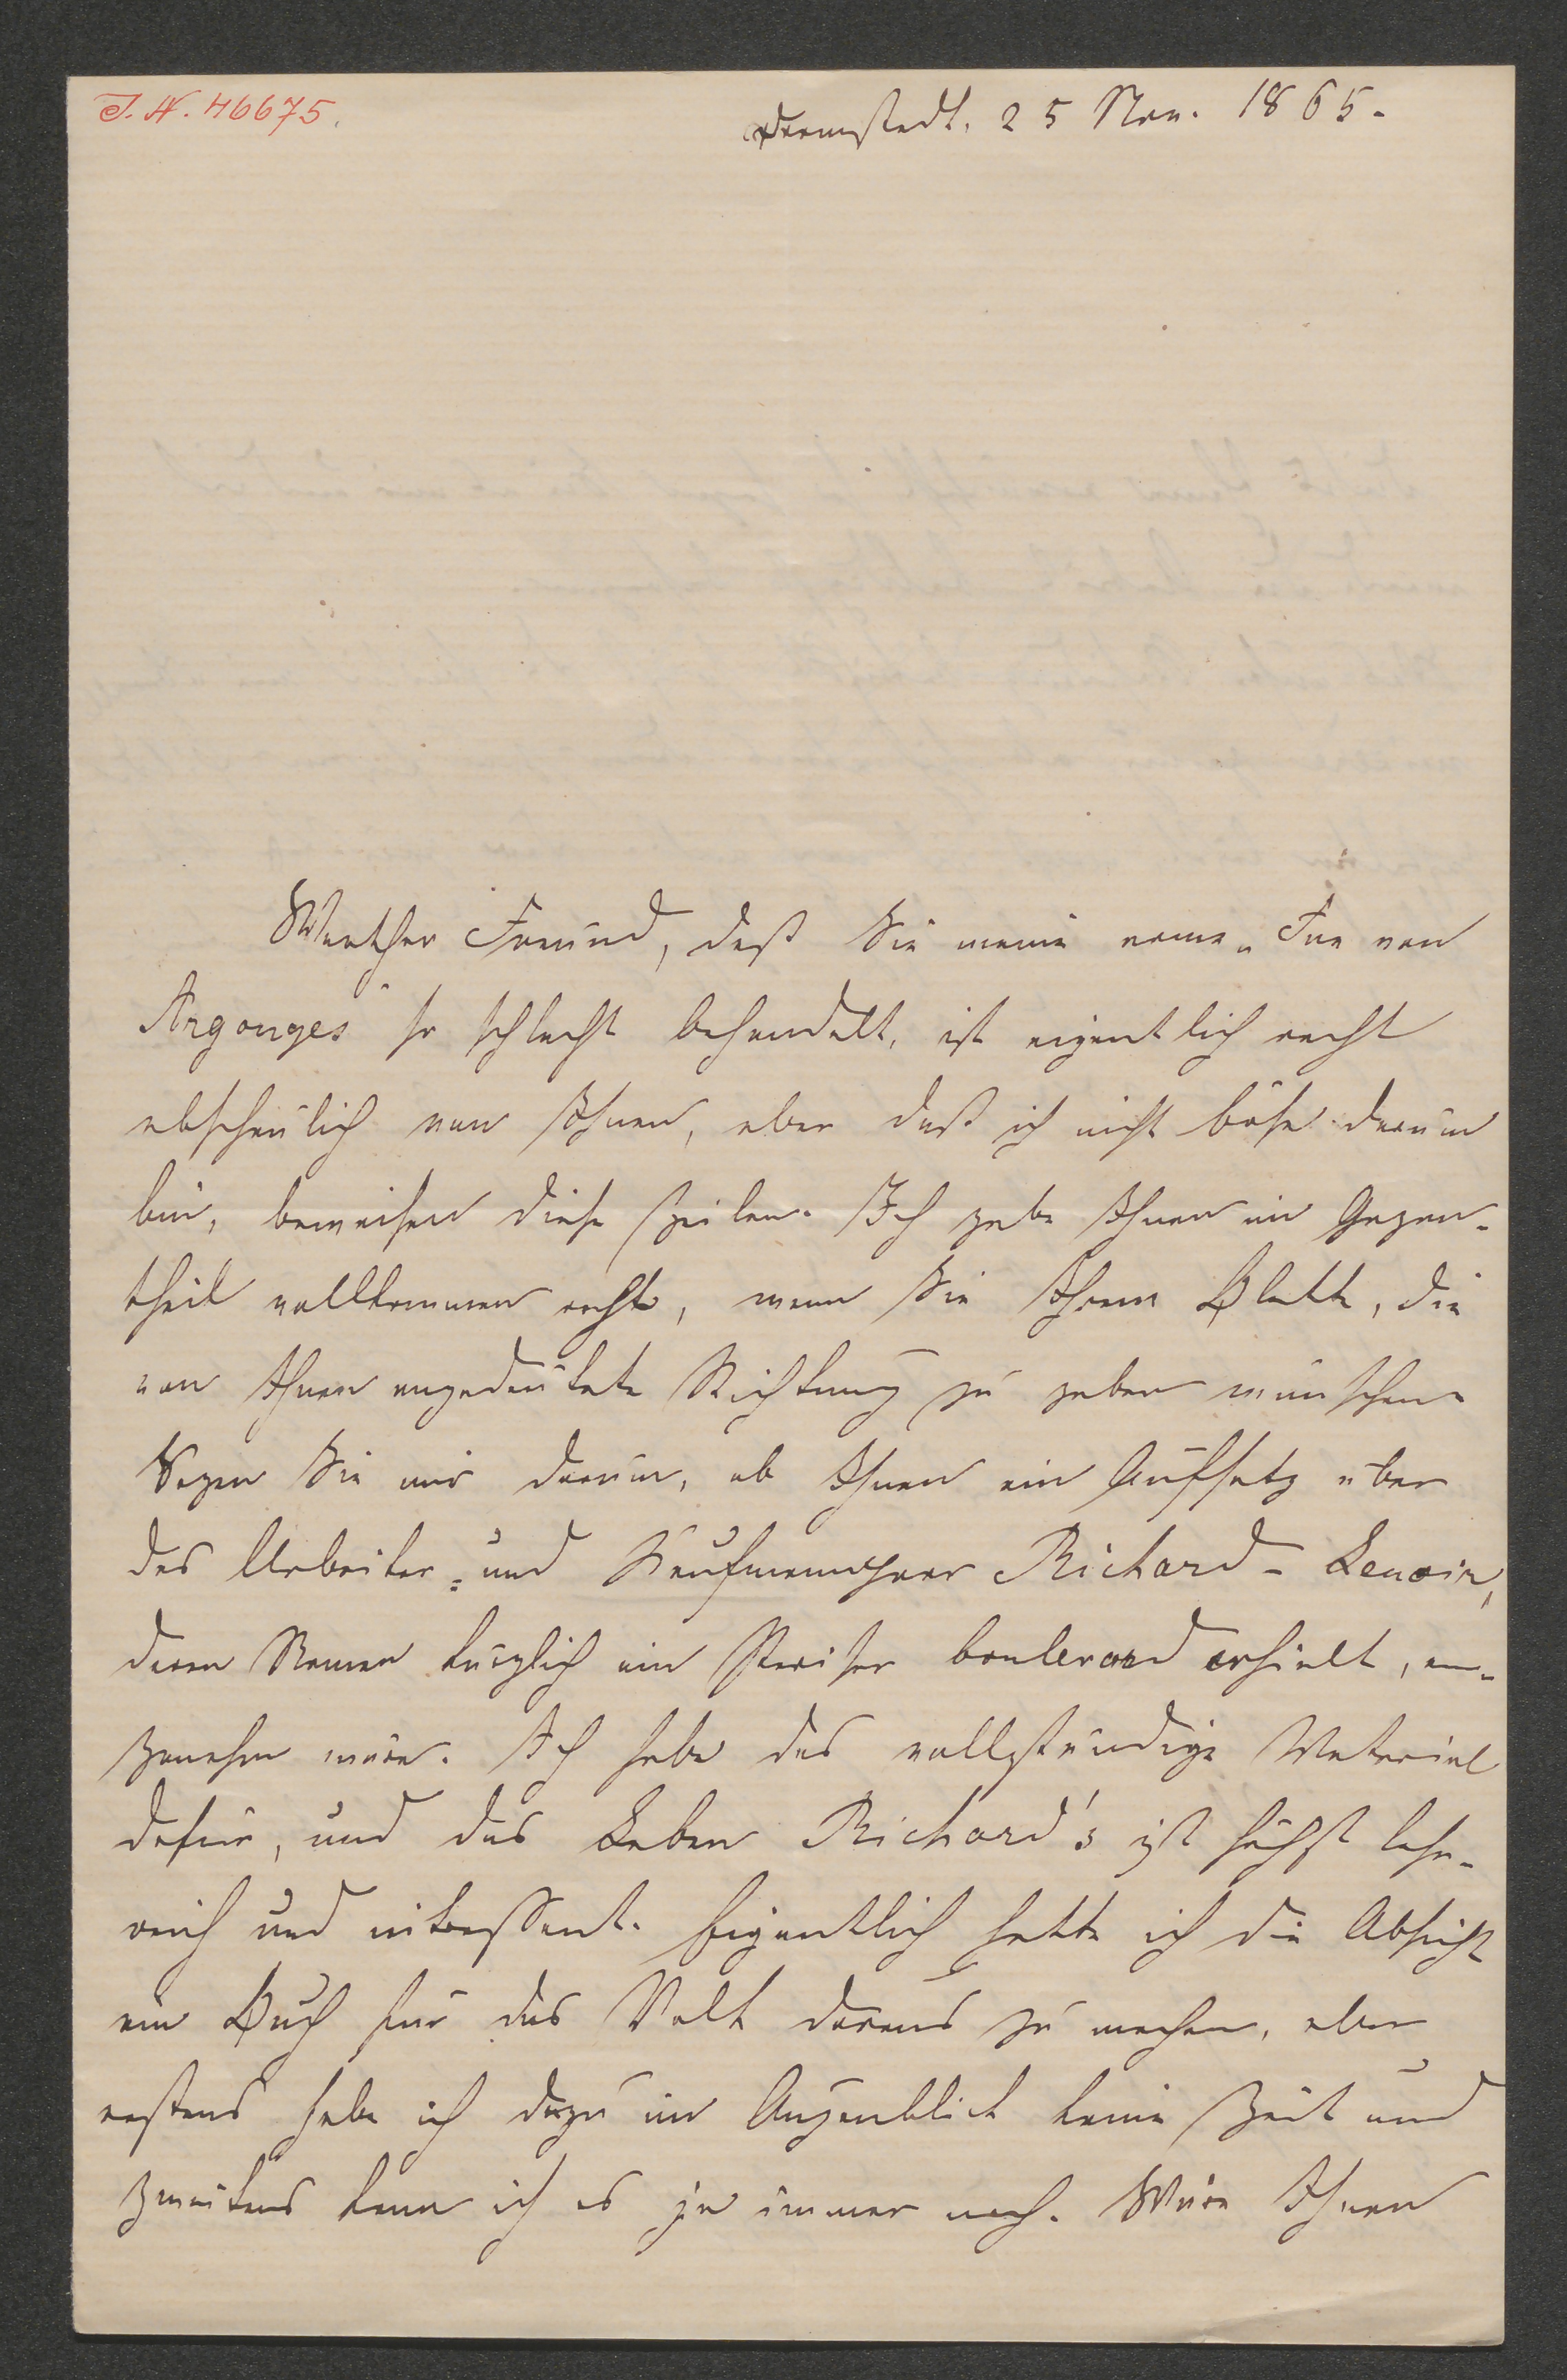 I. N. 46675.
Darmstadt, 25 Nov. 1865.
Werther Freund, daß Sie meine arme „Fee von
Argouges“ so schlecht behandelt, ist eigentlich recht
abscheulich von Ihnen, aber daß ich nicht böse darum
bin, beweisen diese Zeilen. Ich gebe Ihnen im Gegen-
theil vollkommen recht, wenn Sie Ihrem Blatte, die
von Ihnen angedeutete Richtung zu geben wünschen.
Sagen Sie mir darum, ob Ihnen ein Aufsatz über
das Arbeiter- und Kaufmannsheer Richard-Lenoir,
deren Namen kürzlich ein Pariser boulevard erhielt, an-
genehm wäre. Ich habe das vollständige Material
dafür, und das Leben Richard's ist höchst lehr-
reich und interessant. Eigentlich hatte ich die Absicht
ein Buch für das Volk daraus zu machen, aber
erstens habe ich dazu im Augenblick keine Zeit und
zweitens kann ich es ja immer noch. Wäre Ihnen